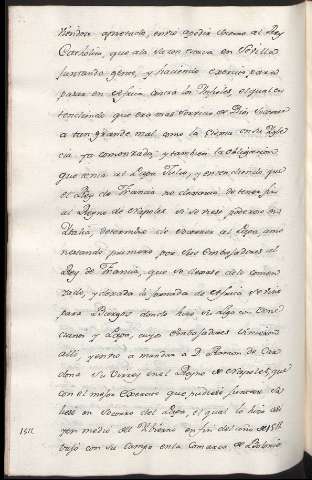 viendose apretado, envio apedir socorro al Rey
Catholico, que ala sazon estava en Sevilla
juntando gente, y haciendo exercito para
pasar en Africa contra los Infieles, el qual en
tendiendo que era mas servicio de Dios, socorrer
a tan grande mal, como la Cisma en su Igle
cia ya comenzada, y tambien la obligacion
que tenia al Papa Julio, y entendiendo que
el Rey de Francia no dexaria de tener fin
al Reyno de Napoles si se viese poderoso en
Italia, determino de socorrer al Papa, amo
nestando primero por sus Embajadores al
Rey de Francia, que se dexase de lo comen
zado, y dexada la jornada de Africa se vino
para Burgos donde hizo su Liga con Vene
cianos y Papa, cuyos Embajadores vinieron
alli, y envio a mandar a D. Ramon de Car
dona su Virrey en el Reyno de Napoles, que
con el mayor Exercito que pudiese juntar sa
liese en socorro del Papa, el qual lo hizo asi
y en medio del Ibierno en fin del año de 1511
1511
con su Campo en la Comarca de Bolonia